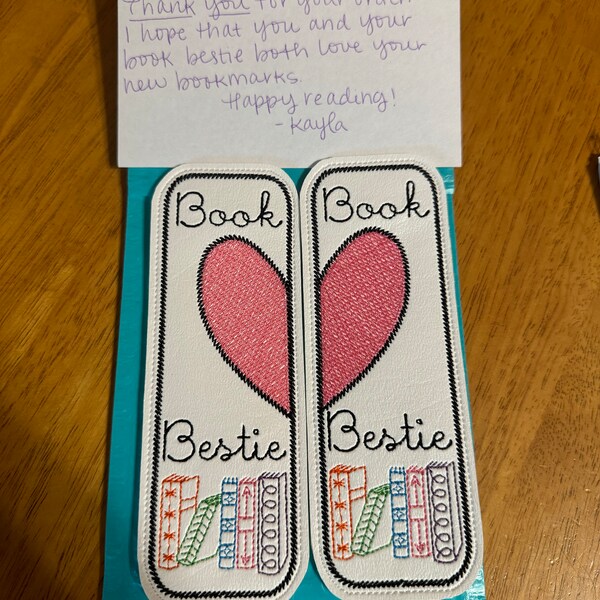 Thank you for your order
I hope that you and your
book bestie both love your
new bookmarks.
Happy reading!
- Kayla
Book
Bestie
Book
Bestie